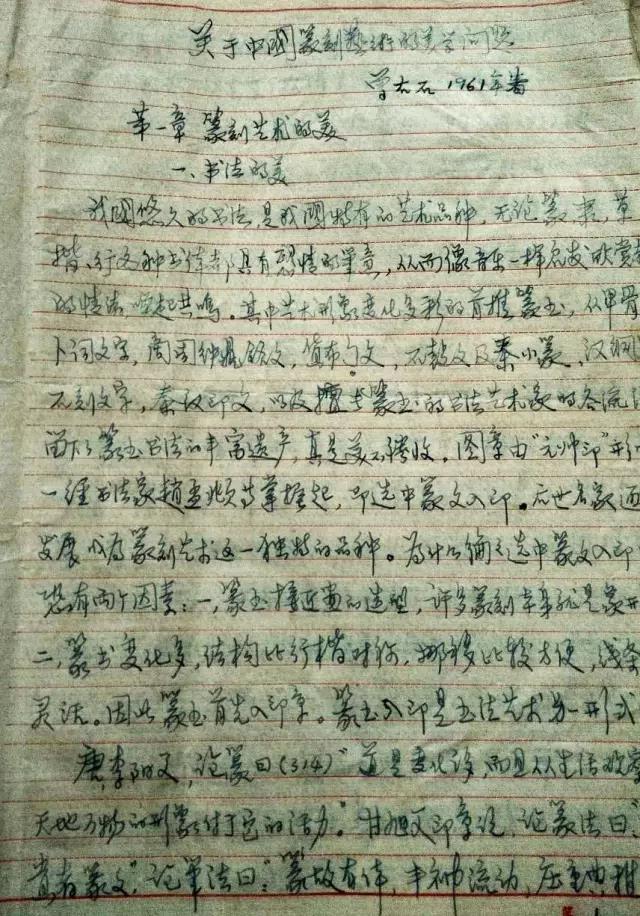 关于中國篆刻藝術的美学问题
曾大石 1961年著
第一章 篆刻艺术的美
一、书法的美
我國悠久的书法,是我國特有的艺术品种,无论篆、隶、草
楷、行各种书体都具有的笔意,从而像音乐一样启发欣赏
的情绪唤起共鸣。其中艺术形象变化多彩的首推篆书,从甲骨
卜词文字,周围钟鼎铭文,货布匋文,石鼓文及秦小篆,汉
石刻文字,秦汉印文,以及擅长篆书的书法艺术家的各流
留下篆书书法的丰富遗产,真是美不胜收。图章由“元帅印”
一经书法家趙孟頫等掌握起,即选中篆文入印。后世名家
发展成为篆刻艺术这一独特的品种。为什么偏々选中篆文入印
恐有两个因素:一、篆书接近画的造型,许多篆刻本身就是象
二、篆书变化多,结构比行楷对称,挪移比较方便,线条
灵活。因此篆书首先入印章。篆书入印是书法艺术另一形式
唐,李阳冰,论篆曰(314)“道是变化多,而且从生活观察
天地万物的形象付于它的活力。”甘旭又印章说,论篆法曰“
贵者篆文”,论笔法曰“篆故有体,丰神流动,庄重典